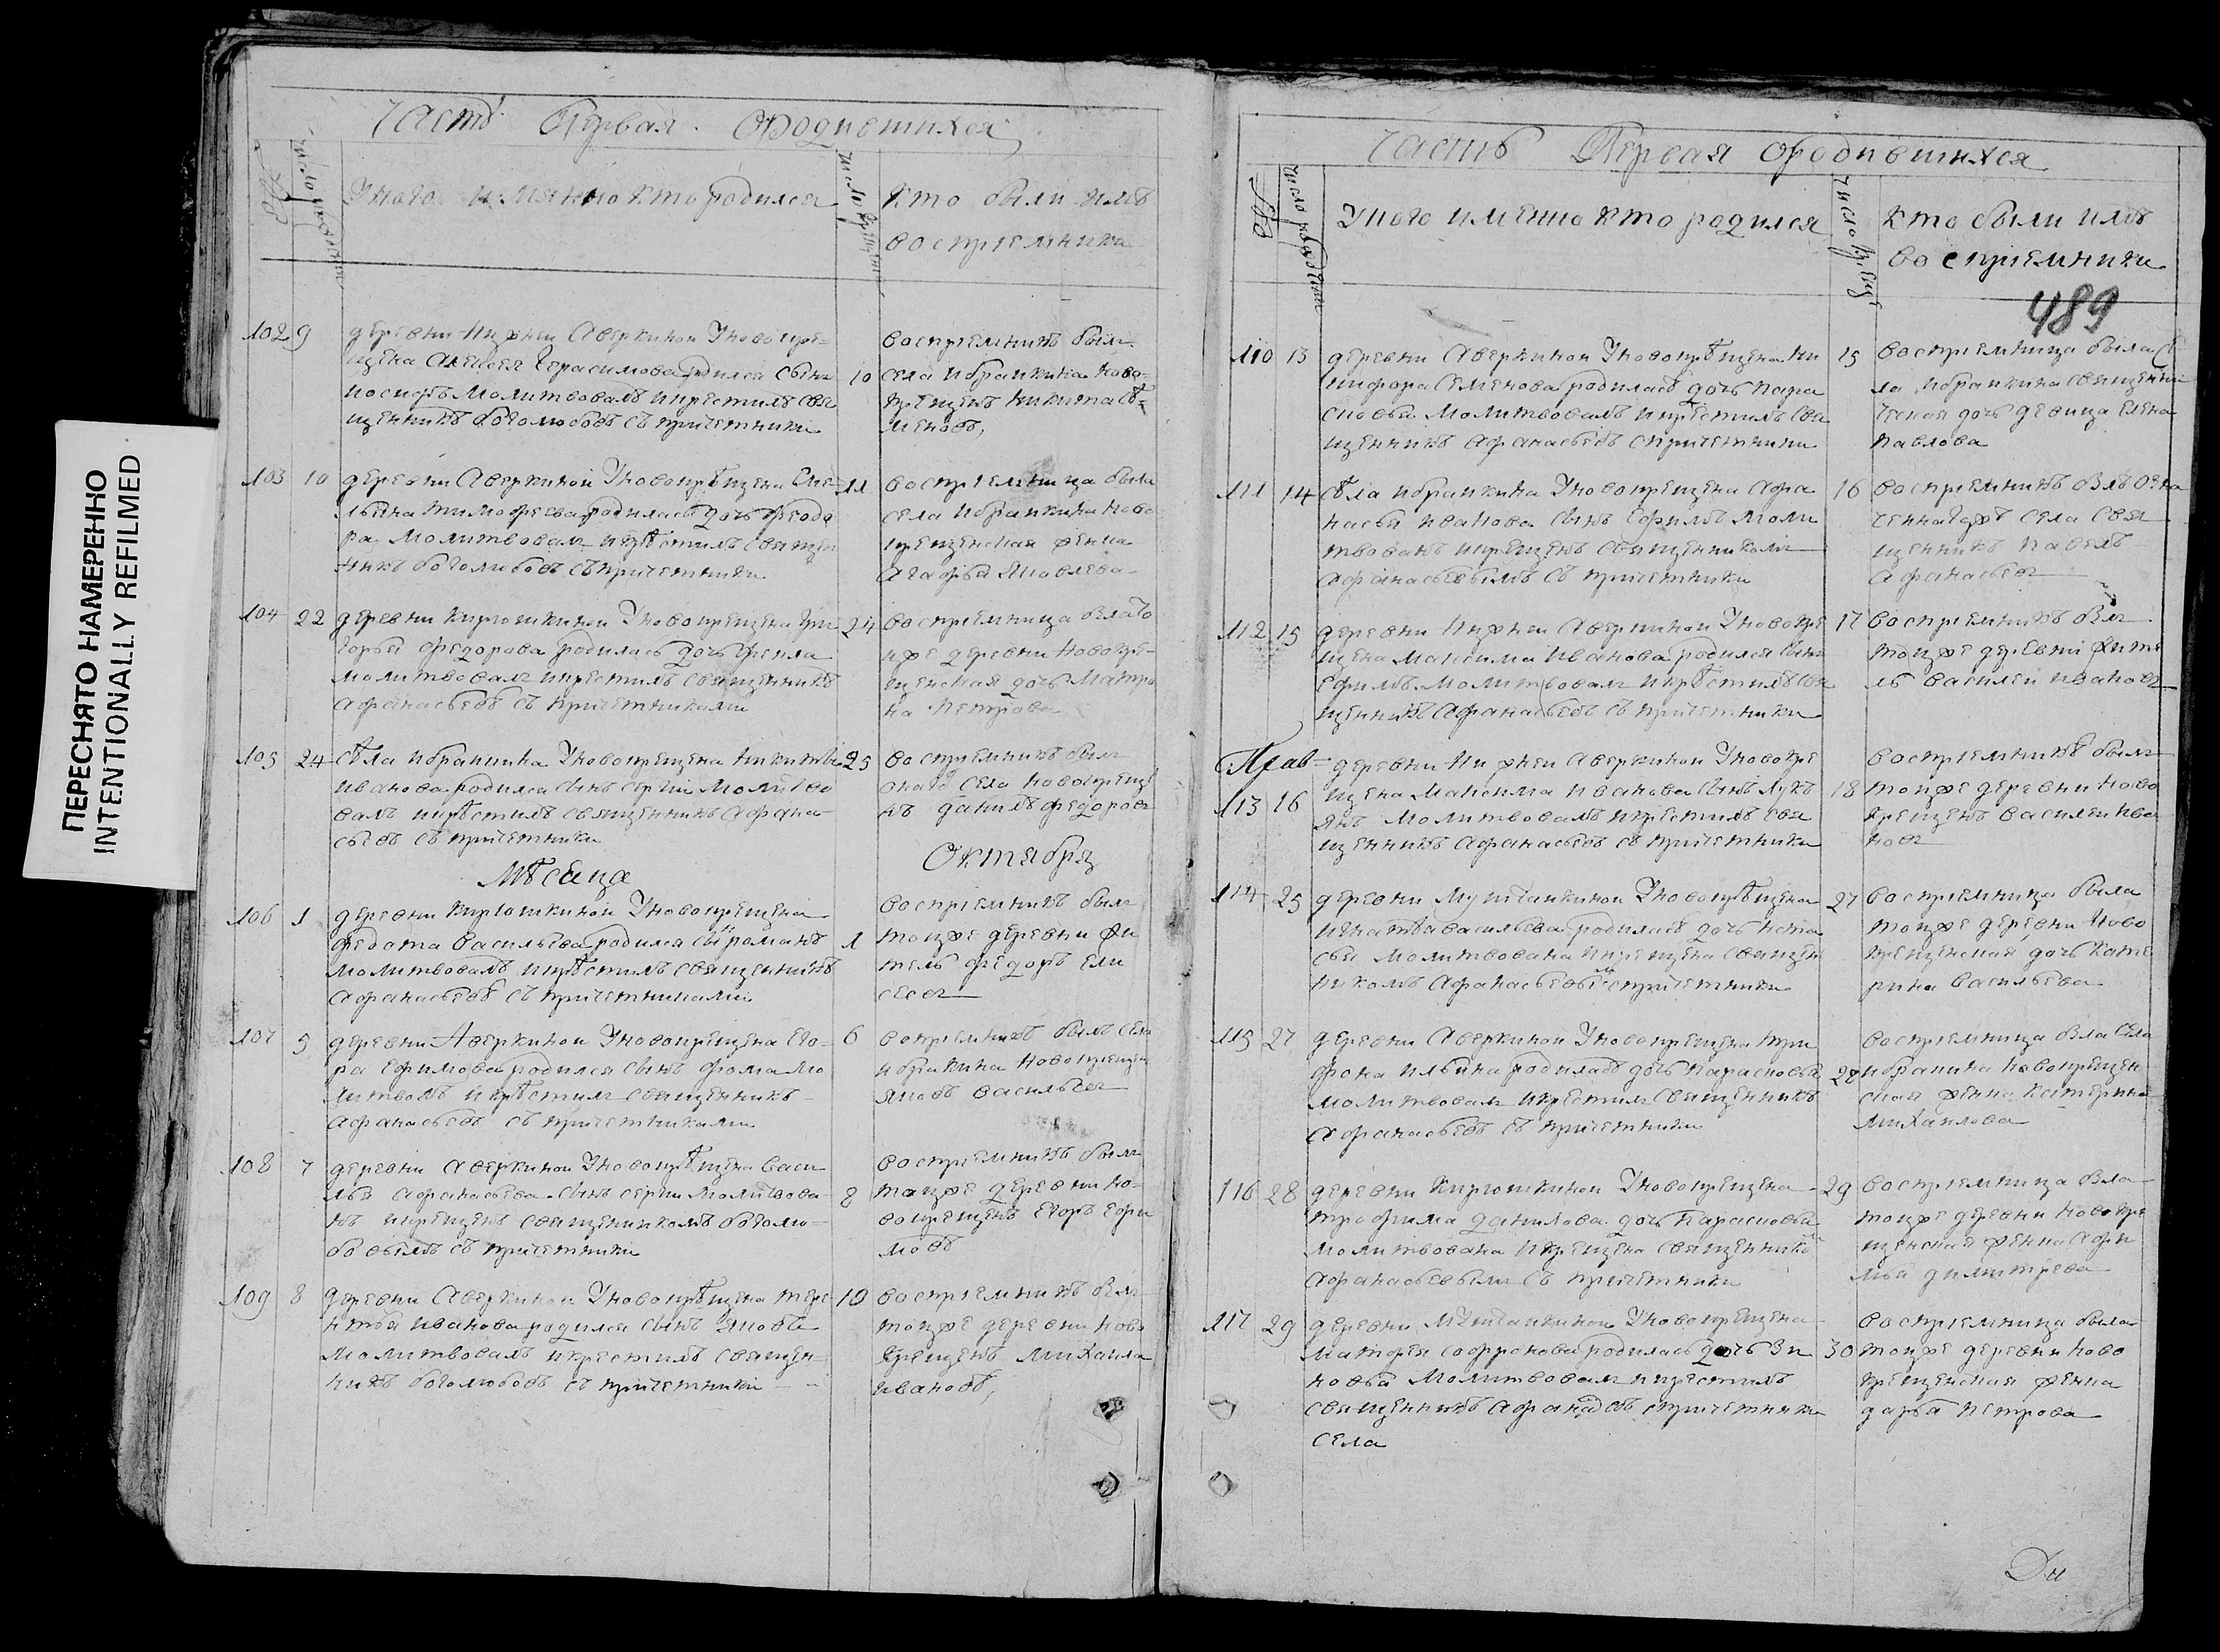 ПЕРЕСНЯТО НАМЕРЕННО
INTENTIONALLY REFILMED
Часть Первая. ородившихся
№
число рождения
Укого имянно кто родился
число крещения
кто были имъ
восприемники
102 9 деревни Нижней Аверкиной Уновокре-
щена Алексея Герасимова родился сынъ
иосифъ молитвовалъ икрестилъ свя
щенникъ Боголюбовъ съ причетники
10
восприемникъ былъ
села ибраикина ново-
крещенъ Никита Се-
меновъ,
103 10 деревни Аверкиной Уновокрѣщена Еме-
льяна тимофеева родилась дочь феодо
ра, молитвовалъ икрѣстилъ священ
никъ боголюбовъ съ причетники
11
восприемница была
села ибраикина ново
крещенская женка
Агафья Яковлева
104 22 деревни кирюшкиной Уновокрещена Гри
горья Федорова родилась дочь фекла
молитвовалъ икрестилъ священникъ
афанасьевъ съ причетниками
24
восприемница была то
иже деревни новокре-
щенская дочь Матро
на Петрова
105 24 сѣла ибраикина Уновокрещена Никиты
иванова родился сынъ сергій молитво
валъ икрѣстилъ священникъ Афана-
сьевъ съ причетники
25
восприемникъ былъ
онаго села новокреще
нъ данилъ федоровъ
Мѣсяца
Октября
106 1 деревни кирюшкиной Уновокрещена
федота васильева родился сынъ романъ
молитвовалъ икрѣстилъ священникъ
афанасьевъ съ причетниками
1
восприемникъ былъ
тоиже деревни жи
тель федоръ Ели
сеевъ
107 5 деревни Аверкиной Уновокрещена Его-
ра Ефимова родился сынъ фома мо
литвовалъ икрѣстилъ священникъ
афанасьевъ съ причетниками
6
восприемникъ былъ села
ибраикина новокрещен
Яковъ Васильевъ
108 7 деревни Аверкиной Уновокрѣщена Васи
лья афанасьева сынъ сергии молитвова-
нъ икрещенъ священникомъ боголю-
бовымъ съ причетники
8
восприемникъ былъ
тоиже деревни но-
вокрещенъ Егоръ Ефи
мовъ
109 8 деревни Аверкиной Уновокрѣщена тере-
нтья иванова родился сынъ Яковъ
молитвовалъ икрестилъ священ-
никъ боголюбовъ съ причетники
10
восприемникъ былъ
тоиже деревни ново
крещенъ Михаила
ивановъ,
Часть Первая ородившихся
№
число рождения
Укого имѣнно кто родился
число крещ
кто были имъ
восприемники
489
110 13 деревни Аверкиной Уновокрѣщена Ни
кифора Семенова родилась дочь пара
сковья. молитвовалъ икрѣстилъ свя
щенникъ Афанасьевъ спричетники
15
восприемница была се
ла ибраикина священни
ческая дочь девица Елена
Павлова
111 14 сѣла ибраикина Уновокрещена Афа
насья иванова сынъ Ефимъ моли
твованъ икрещенъ священникомъ
афанасьевымъ съ причетники
16
восприемникъ былъ озна
ченнагожъ села свя
щенникъ павелъ
афанасьевъ
112 15 деревни Нижней Аверкиной Уновокре
щена Максима иванова родился сынъ
Ефимъ. молитвовалъ икрѣстилъ свя
щенникъ Афанасьевъ съ причетники
17
восприемникъ былъ
тоиже деревни жите
ль василеи ивановъ
деревни Нижней Аверкиной Уновокре
113 16 щена Максима иванова сынъ Лукъ
янъ молитвовалъ икрестилъ свя
щенникъ Афанасьевъ съ причетники
18
восприемникъ былъ
тоиже деревни ново
крещенъ василеи ива
новъ
114 25 деревни Мушташкиной Уновокрѣщена
игнатья васильева родилась дочь наста
сья молитвована икрещена священ
никомъ Афанасьевымъ спричетники
27
восприемница была
тоиже деревни ново
крещенская дочь кате
рина васильева
115 27 деревни Аверкиной Уновокрещена три
фона ильина родиласъ дочь Парасковья
молитвовалъ икрестилъ священникъ
Афанасьевъ съ причетники
28
восприемница была села
ибраикина новокрещен
ская женка катерина
михаилова
116 28 деревни Кирюшкиной Уновокрещена
трофима данилова дочь Парасковья
молитвована икрещена священнико
афанасьевымъ съ причетники
29
восприемница была
тоиже деревни новокре
щенская женка Афи
мья димитрева
117 29 деревни Мушташкиной Уновокрещена
матфея софронова родилась дочь Зи
новья молитвовалъ икрестилъ
священникъ афанасьевъ спричетники
села
30
восприемница была
тоиже деревни ново
крещенская женка
дарья петрова